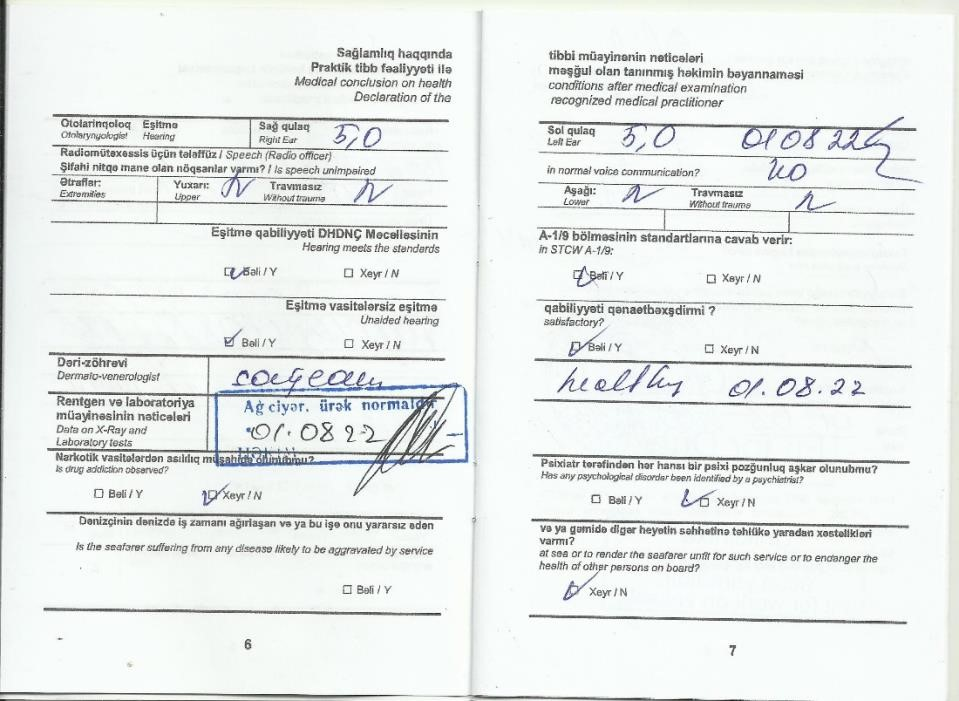 Sağlamlıq haqqında
Praktik tibb fəaliyyəti ilə
Medical conclusion on health
Declaration of the
Otolarinqoloq Eşitmə Sağ qulaq 5,0
Otolaryngologist Hearing Right Ear
Radiomütəxəssis üçün tələffüz / Speech (Radio officer)
Şifahi nitqə mane olan nöqsanlar varmı? / Is speech unimpaired
Ətraflar: Yuxarı: N Travmasız N
Extremities Upper Without trauma
Eşitmə qabiliyyəti DHDNÇ Məcəlləsinin
Hearing meets the standards
Bəli / Y Xeyr / N
Eşitmə vasitələrsiz eşitmə
Unaided hearing
Bəli / Y Xeyr / N
Dəri-zöhrəvi
Dermato-venerologist
Rentgen və laboratoriya
müayinəsinin nəticələri
Data on X-Ray and
Laboratory tests
Ağciyər, ürək normaldır
01.08 22
Narkotik vasitələrdən asılılıq müşahidə olunubmu?
Is drug addiction observed?
Bəli / Y Xeyr / N
Dənizçinin dənizdə iş zamanı ağırlaşan və ya bu işə onu yararsız edən
Is the seafarer suffering from any disease likely to be aggravated by service
Bəli / Y
6
tibbi müayinənin nəticələri
məşğul olan tanınmış həkimin bəyannaməsi
conditions after medical examination
recognized medical practitioner
Sol qulaq 5,0 01 08 22
Left Ear
in normal voice communication? no
Aşağı: N Travmasız N
Lower Without trauma
A-1/9 bölməsinin standartlarına cavab verir:
in STCW A-1/9:
Bəli / Y Xeyr / N
qabiliyyəti qənaətbəxşdirmi ?
satisfactory?
Bəli / Y Xeyr / N
healthy 01.08.22
Psixiatr tərəfindən hər hansı bir psixi pozğunluq aşkar olunubmu?
Has any psychological disorder been identified by a psychiatrist?
Bəli / Y Xeyr / N
və ya gəmidə digər heyətin səhhətinə təhlükə yaradan xəstəlikləri
varmı?
at sea or to render the seafarer unfit for such service or to endanger the
health of other persons on board?
Xeyr / N
7